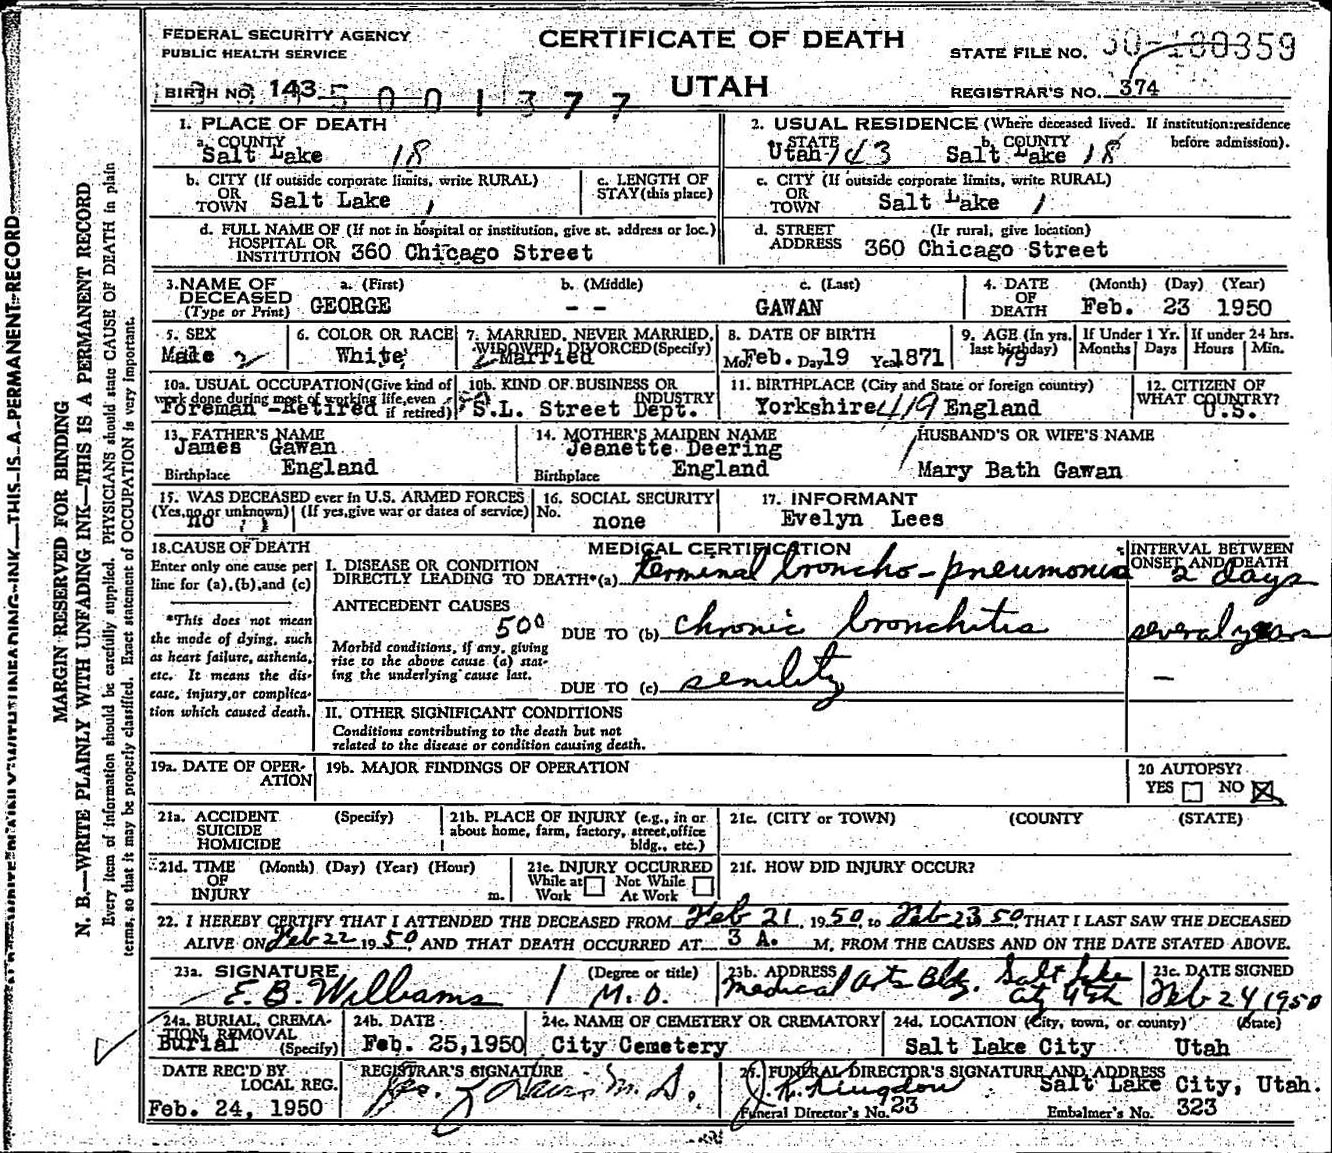 FEDERAL SECURITY AGENCY
PUBLIC HEALTH SERVICE
CERTIFICATE OF DEATH
UTAH
STATE FILE NO.
BIRTH NO. 143
5001377
REGISTRAR'S NO. 374
1. PLACE OF DEATH
a. COUNTY
Salt Lake 18
2. USUAL RESIDENCE (Where deceased lived. If institution: residence before admission).
a. STATE
Utah 143
b. COUNTY
Salt Lake 18
b. CITY (If outside corporate limits, write RURAL)
OR
TOWN Salt Lake
c. LENGTH OF
STAY (this place)
c. CITY (If outside corporate limits, write RURAL)
OR
TOWN Salt Lake 1
d. FULL NAME OF (If not in hospital or institution, give st. address or loc.)
HOSPITAL OR
INSTITUTION 360 Chicago Street
d. STREET (If rural, give location)
ADDRESS 360 Chicago Street
3. NAME OF DECEASED (Type or Print)
a. (First) GEORGE
b. (Middle) - -
c. (Last) GAWAN
4. DATE OF DEATH
(Month) (Day) (Year)
Feb. 23 1950
5. SEX
Male
6. COLOR OR RACE
White
7. MARRIED, NEVER MARRIED,
WIDOWED, DIVORCED (Specify)
Married
8. DATE OF BIRTH
Mo. Feb. Day 19 Year 1871
9. AGE (In yrs. last birthday)
79
If Under 1 Yr.
Months Days
If under 24 hrs.
Hours Min.
10a. USUAL OCCUPATION (Give kind of
work done during most of working life, even
if retired)
Foreman -Retired
10b. KIND OF BUSINESS OR
INDUSTRY
S.L. Street Dept.
11. BIRTHPLACE (City and State or foreign country)
Yorkshire 419 England
12. CITIZEN OF
WHAT COUNTRY?
U.S.
13. FATHER'S NAME
James Gawan
Birthplace England
14. MOTHER'S MAIDEN NAME
Jeanette Deering
Birthplace England
HUSBAND'S OR WIFE'S NAME
Mary Bath Gawan
15. WAS DECEASED ever in U.S. ARMED FORCES
(Yes, no, or unknown) (If yes, give war or dates of service)
no
16. SOCIAL SECURITY
No.
none
17. INFORMANT
Evelyn Lees
18. CAUSE OF DEATH
Enter only one cause per
line for (a), (b), and (c)
*This does not mean
the mode of dying, such
as heart failure, asthenia,
etc. It means the dis-
ease, injury, or complica-
tion which caused death.
MEDICAL CERTIFICATION
I. DISEASE OR CONDITION
DIRECTLY LEADING TO DEATH*(a) terminal broncho-pneumonia
INTERVAL BETWEEN
ONSET AND DEATH
2 days
ANTECEDENT CAUSES
500 DUE TO (b) chronic bronchitis
several years
Morbid conditions, if any, giving
rise to the above cause (a) stat-
ing the underlying cause last.
DUE TO (c) senility
—
II. OTHER SIGNIFICANT CONDITIONS
Conditions contributing to the death but not
related to the disease or condition causing death.
19a. DATE OF OPER-
ATION
19b. MAJOR FINDINGS OF OPERATION
20 AUTOPSY?
YES NO
21a. ACCIDENT (Specify)
SUICIDE
HOMICIDE
21b. PLACE OF INJURY (e.g., in or
about home, farm, factory, street, office
bldg., etc.)
21c. (CITY or TOWN) (COUNTY (STATE)
21d. TIME (Month) (Day) (Year) (Hour)
OF
INJURY m.
21e. INJURY OCCURRED
While at Work Not While At Work
21f. HOW DID INJURY OCCUR?
22. I HEREBY CERTIFY THAT I ATTENDED THE DECEASED FROM Feb 21, 1950, to Feb 23 50, THAT I LAST SAW THE DECEASED
ALIVE ON Feb 22 1950, AND THAT DEATH OCCURRED AT 3 A. M, FROM THE CAUSES AND ON THE DATE STATED ABOVE.
23a. SIGNATURE
E. B. Williams
(Degree or title)
M. D.
23b. ADDRESS
Medical Arts Bldg. Salt Lake
City Utah
23c. DATE SIGNED
Feb 24 1950
24a. BURIAL, CREMA-
TION, REMOVAL
(Specify)
Burial
24b. DATE
Feb. 25, 1950
24c. NAME OF CEMETERY OR CREMATORY
City Cemetery
24d. LOCATION (City, town, or county) (State)
Salt Lake City Utah
DATE REC'D BY
LOCAL REG.
Feb. 24, 1950
REGISTRAR'S SIGNATURE
M. D.
25. FUNERAL DIRECTOR'S SIGNATURE AND ADDRESS
Salt Lake City, Utah.
Funeral Director's No. 23
Embalmer's No. 323
MARGIN RESERVED FOR BINDING
N. B.—WRITE PLAINLY WITH UNFADING INK—THIS IS A PERMANENT RECORD
Every item of information should be carefully supplied. PHYSICIANS should state CAUSE OF DEATH in plain
terms, so that it may be properly classified. Exact statement of OCCUPATION is very important.
INK—THIS—IS—A—PERMANENT—RECORD